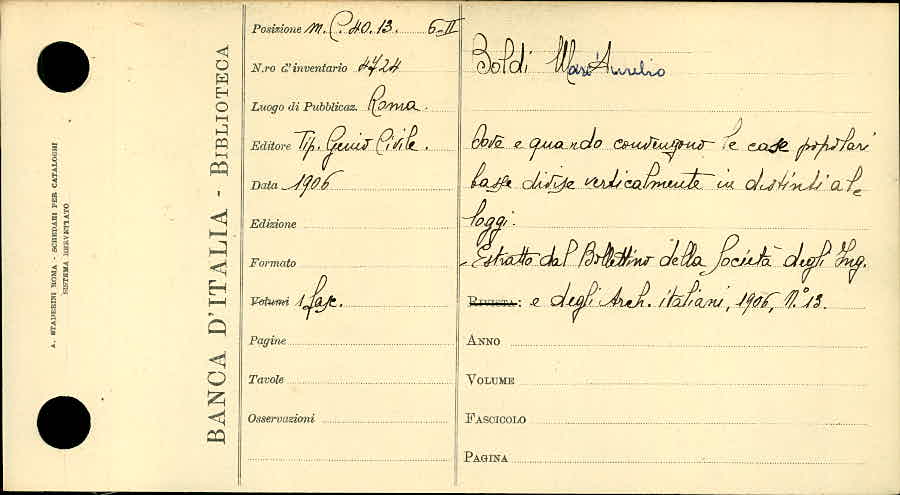 A. STADERINI ROMA - SCHEDARI PER CATALOGHI
SISTEMA BREVETTATO
BANCA D'ITALIA - BIBLIOTECA
Posizione M. C. 40. 13. 6-II
N.ro d'inventario 4724
Luogo di Pubblicaz. Roma.
Editore Tip. Genio Civile.
Data 1906
Edizione
Formato
Volumi 1 fasc.
Pagine
Tavole
Osservazioni
Boldi Marc'Aurelio
Dove e quando convengono le case popolari
basse divise verticalmente in distinti al-
loggi.
- Estratto dal Bollettino della Società degli Ing.
RIVISTA: e degli Arch. italiani, 1906, N.° 13.
ANNO
VOLUME
FASCICOLO
PAGINA